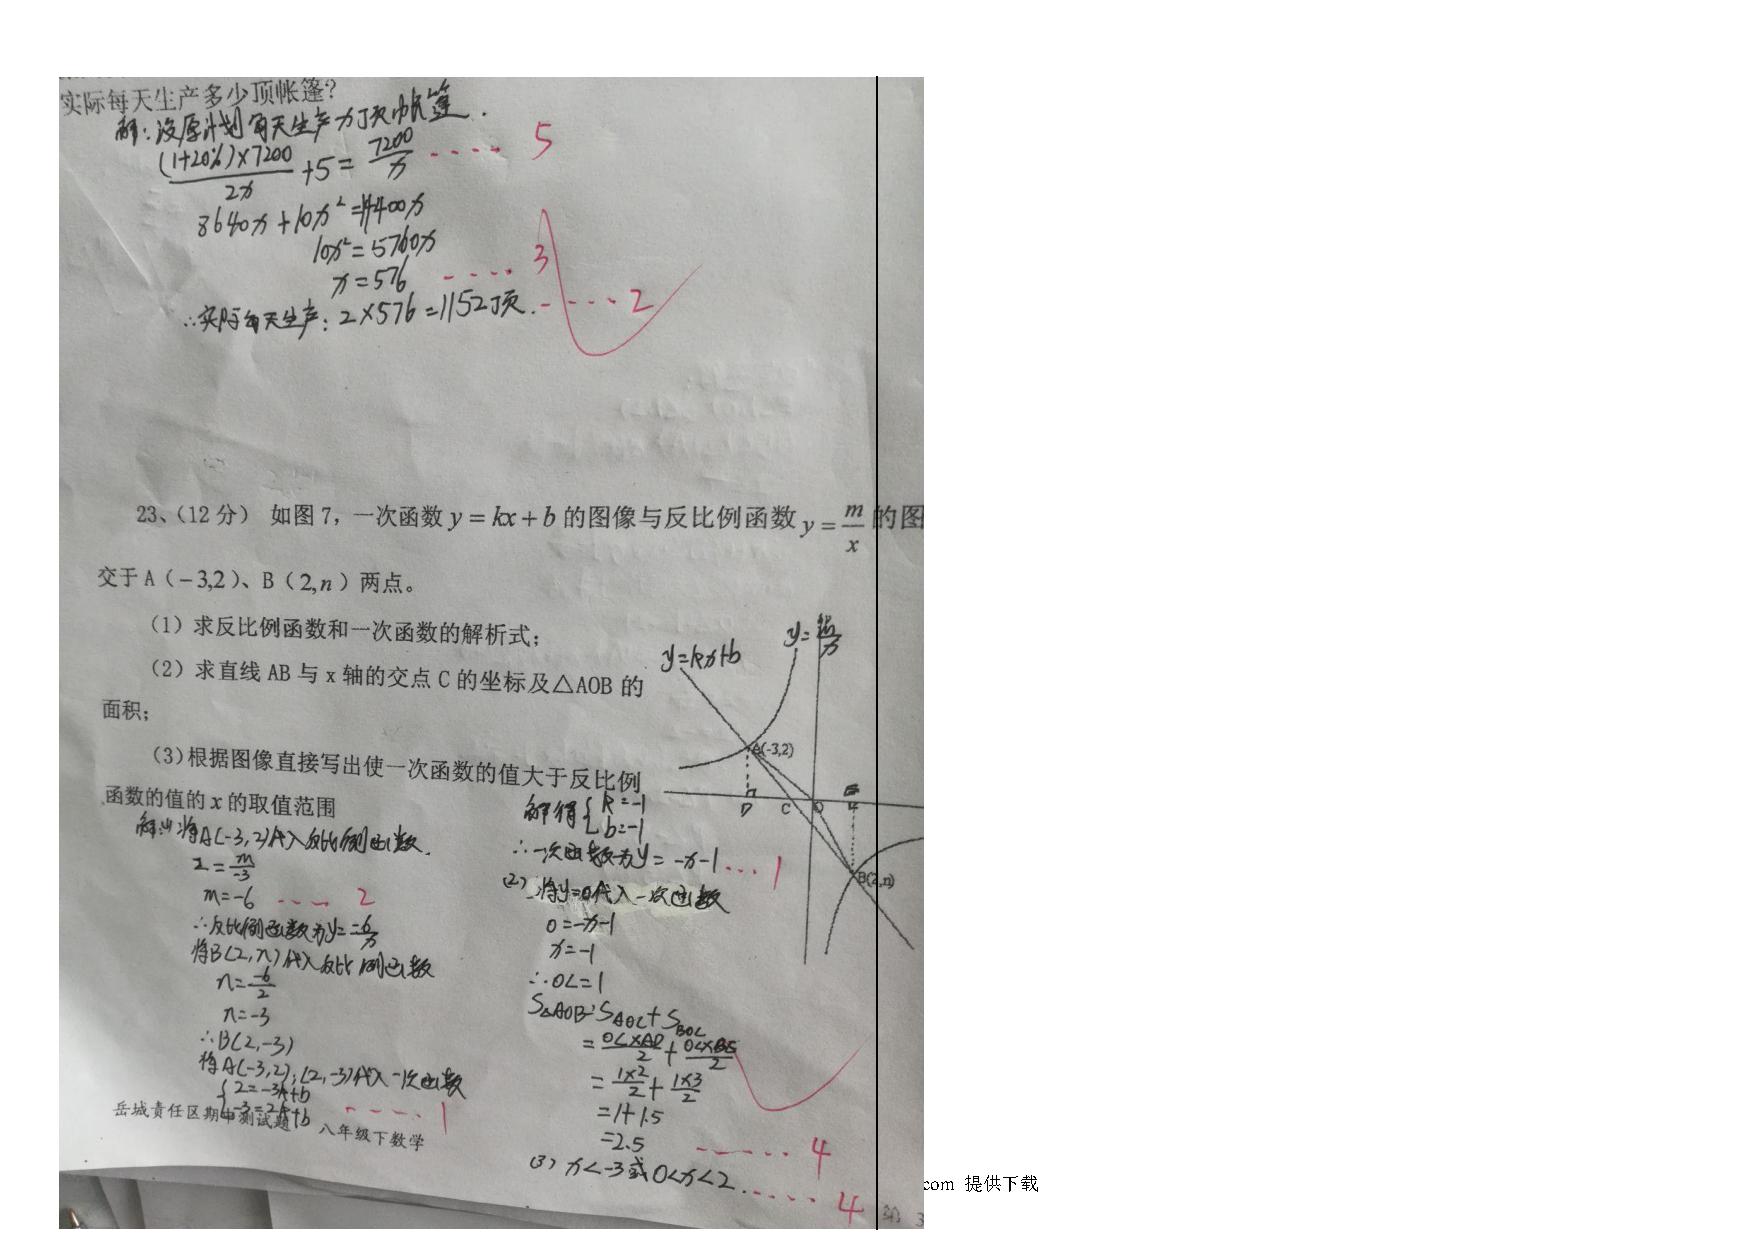 实际每天生产多少顶帐篷?
解:设原计划每天生产x顶帐篷.
(1+20%)×7200/2x +5= 7200/x ---- 5
8640x+10x²=14400x
10x²=5760x
x=576 ---- 3
∴实际每天生产: 2×576=1152顶. ---- 2
23、(12分) 如图7, 一次函数 y=kx+b 的图像与反比例函数 y=m/x 的图
交于 A(-3,2)、B(2,n)两点。
(1) 求反比例函数和一次函数的解析式;
(2) 求直线 AB 与 x 轴的交点 C 的坐标及△AOB 的
面积;
(3)根据图像直接写出使一次函数的值大于反比例
函数的值的 x 的取值范围
y=kx+b
y=m/x
A(-3,2)
D
C
O
E
B(2,n)
解:(1)将A(-3,2)代入反比例函数.
2=m/-3
m=-6 ---- 2
∴反比例函数为y=-6/x
将B(2,n)代入反比例函数
n=-6/2
n=-3
∴B(2,-3)
将A(-3,2),(2,-3)代入一次函数
{2=-3k+b
-3=2k+b ---- 1
岳城责任区期中测试题 八年级下数学
解得{k=-1
b=-1
∴一次函数为y=-x-1 ... 1
(2)将y=0代入一次函数
0=-x-1
x=-1
∴OC=1
S△AOB=SAOC+SBOC
=OC×AD/2+OC×BE/2
=1×2/2+1×3/2
=1+1.5
=2.5 ----- 4
(3) x<-3或0<x<2 ..... 4
第 3
com 提供下载